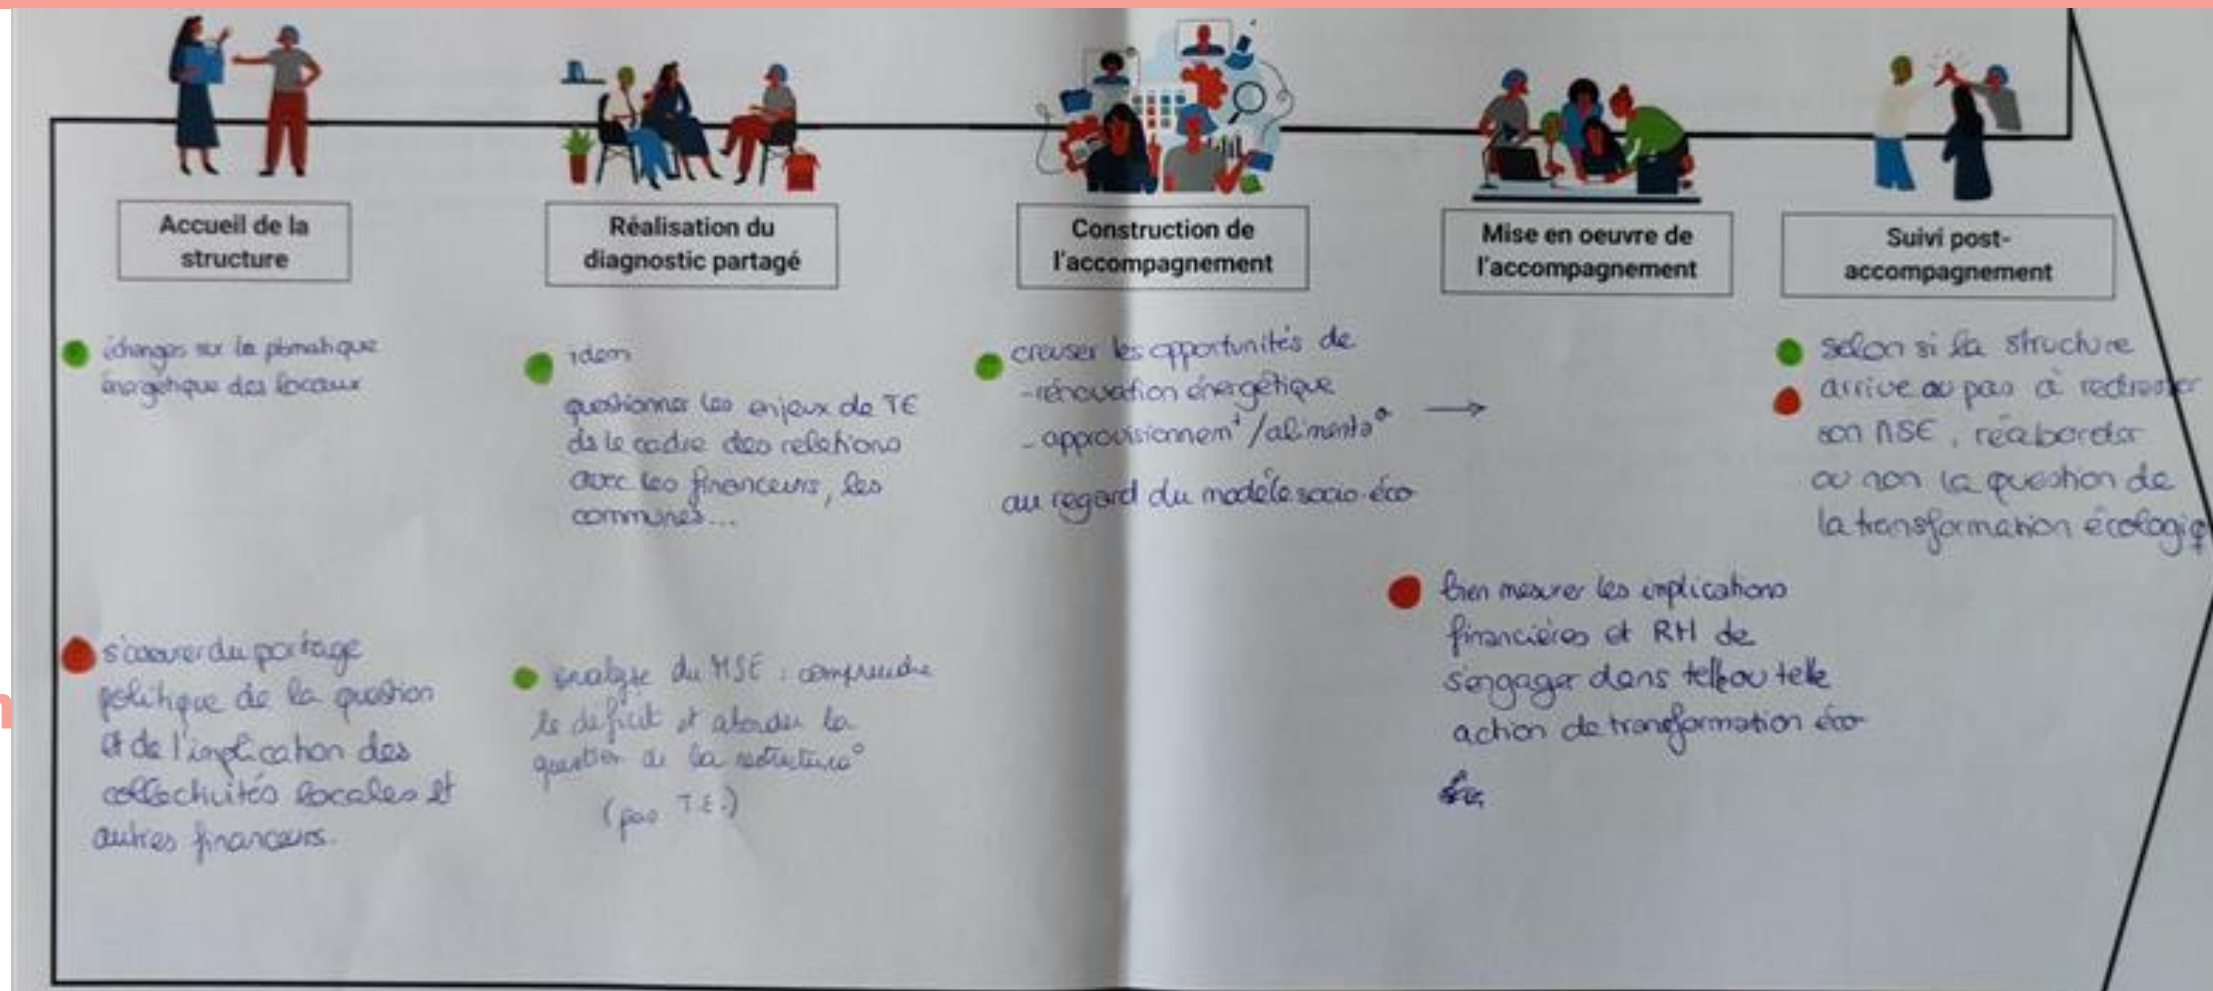 Accueil de la
structure
échanges sur la pbmatique
énergétique des locaux
s'assurer du portage
politique de la question
et de l'implication des
collectivités locales et
autres financeurs.
Réalisation du
diagnostic partagé
idem
questionner les enjeux de TE
ds le cadre des relations
avec les financeurs, les
communes...
analyse du MSE : comprendre
le déficit et aborder la
question de la restructura°
(pas T.E.)
Construction de
l'accompagnement
creuser les opportunités de
- rénovation énergétique
- approvisionnemt / alimenta°
au regard du modèle socio-éco
Mise en oeuvre de
l'accompagnement
bien mesurer les implications
financières et RH de
s'engager dans telle ou telle
action de transformation éco
Suivi post-
accompagnement
selon si la structure
arrive ou pas à redresser
son MSE, réaborder
ou non la question de
la transformation écologiq